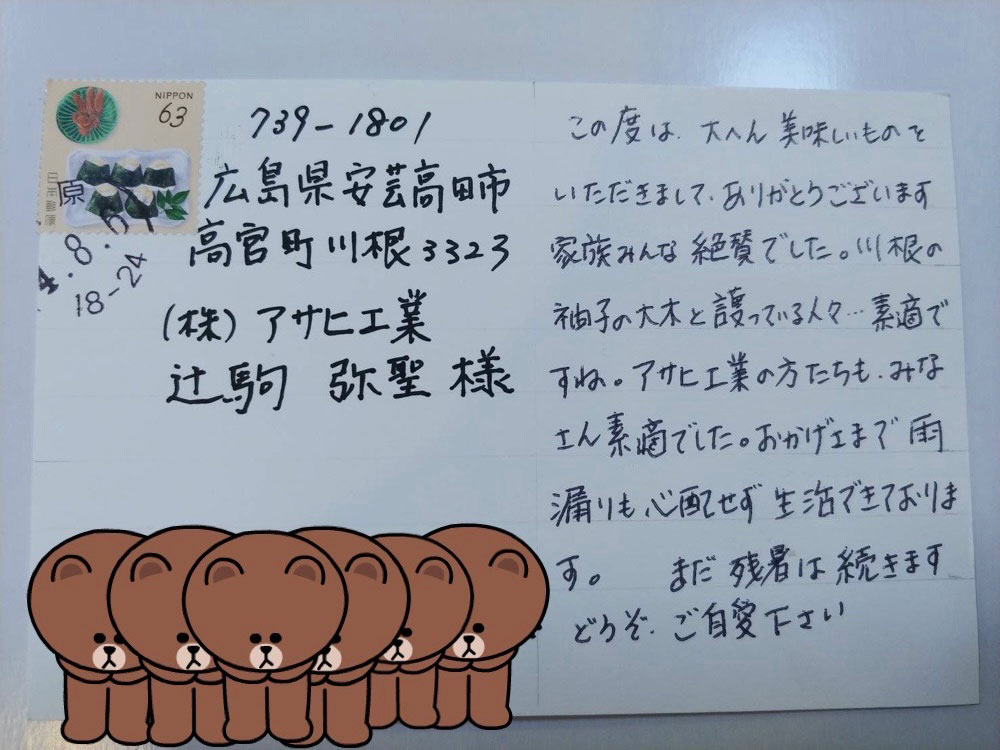 NIPPON
63
日本郵便
原
4.8.
18-24
739-1801
広島県安芸高田市
高宮町川根3323
(株)アサヒ工業
辻駒 弥聖 様
この度は、大へん美味しいものを
いただきまして、ありがとうございます
家族みんな絶賛でした。川根の
柚子の大木と護っている人々…素適で
すね。アサヒ工業の方たちも、みな
さん素適でした。おかげさまで雨
漏りも心配せず生活できておりま
す。 まだ残暑は続きます
どうぞ、ご自愛下さい